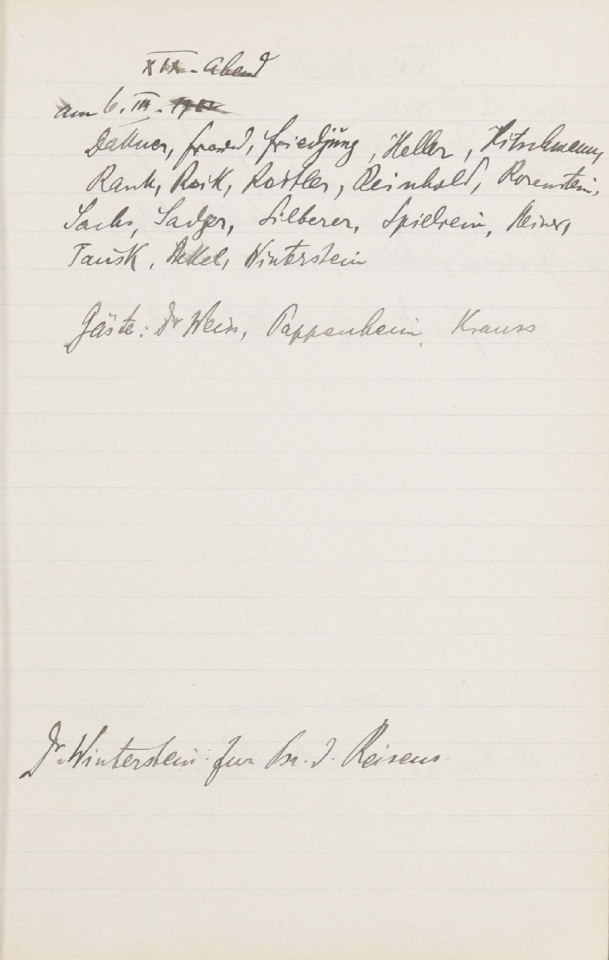 XIX. Abend
am 6. III. 1912
Dattner, Freud, Friedjung, Heller, Hitschmann,
Rank, Reik, Reitler, Reinhold, Rosenstein,
Sachs, Sadger, Silberer, Spielrein, Steiner,
Tausk, Stekel, Winterstein
Gäste: Dr Weiss, Pappenheim, Krauss
Dr. Winterstein: zur d. Reisens